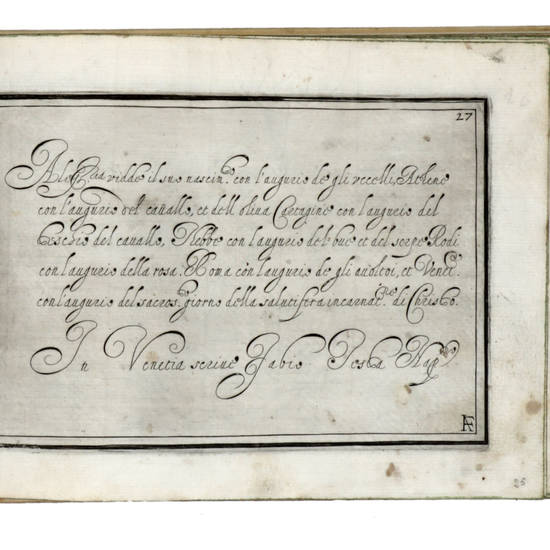 27
Ales.ᵈʳⁱᵃ vidde il suo nascim.ᵗᵒ con l'augurio de gli vccelli, Athene
con l'augurio del cauallo, et dell' oliua Cartagine con l'augurio del
teschio del cauallo, Thebbe con l'augurio del bue et del serpe Rodi
con l'augurio della rosa. Roma con l'augurio de gli auoltoi, et Venet.ᵃ
con l'augurio del sacros.ᵗᵒ giorno della salutifera incarnat.ⁿᵉ di Christo.
In Venetia scriue Fabio Testa Nap.ⁿᵒ
25